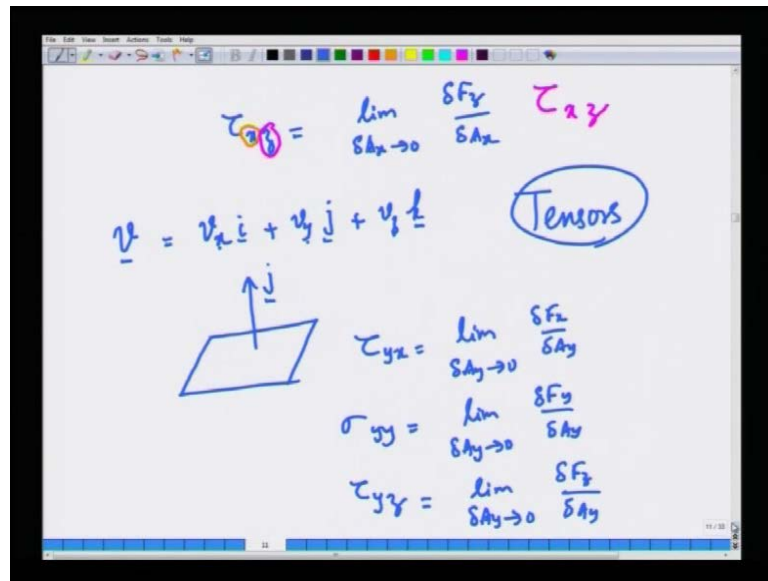 File Edit View Insert Actions Tools Help
τxz = lim δAx→0 δFz/δAx τxz
v = vx i + vy j + vz k
Tensors
j
τyx = lim δAy→0 δFx/δAy
σyy = lim δAy→0 δFy/δAy
τyz = lim δAy→0 δFz/δAy
11
11 / 33